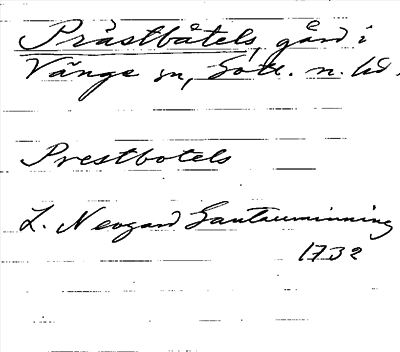 Prästbåtels, gård i
Vänge sn, Gotl. n. hd.
Prestbotels
L. Neogard Gautauminning
1732